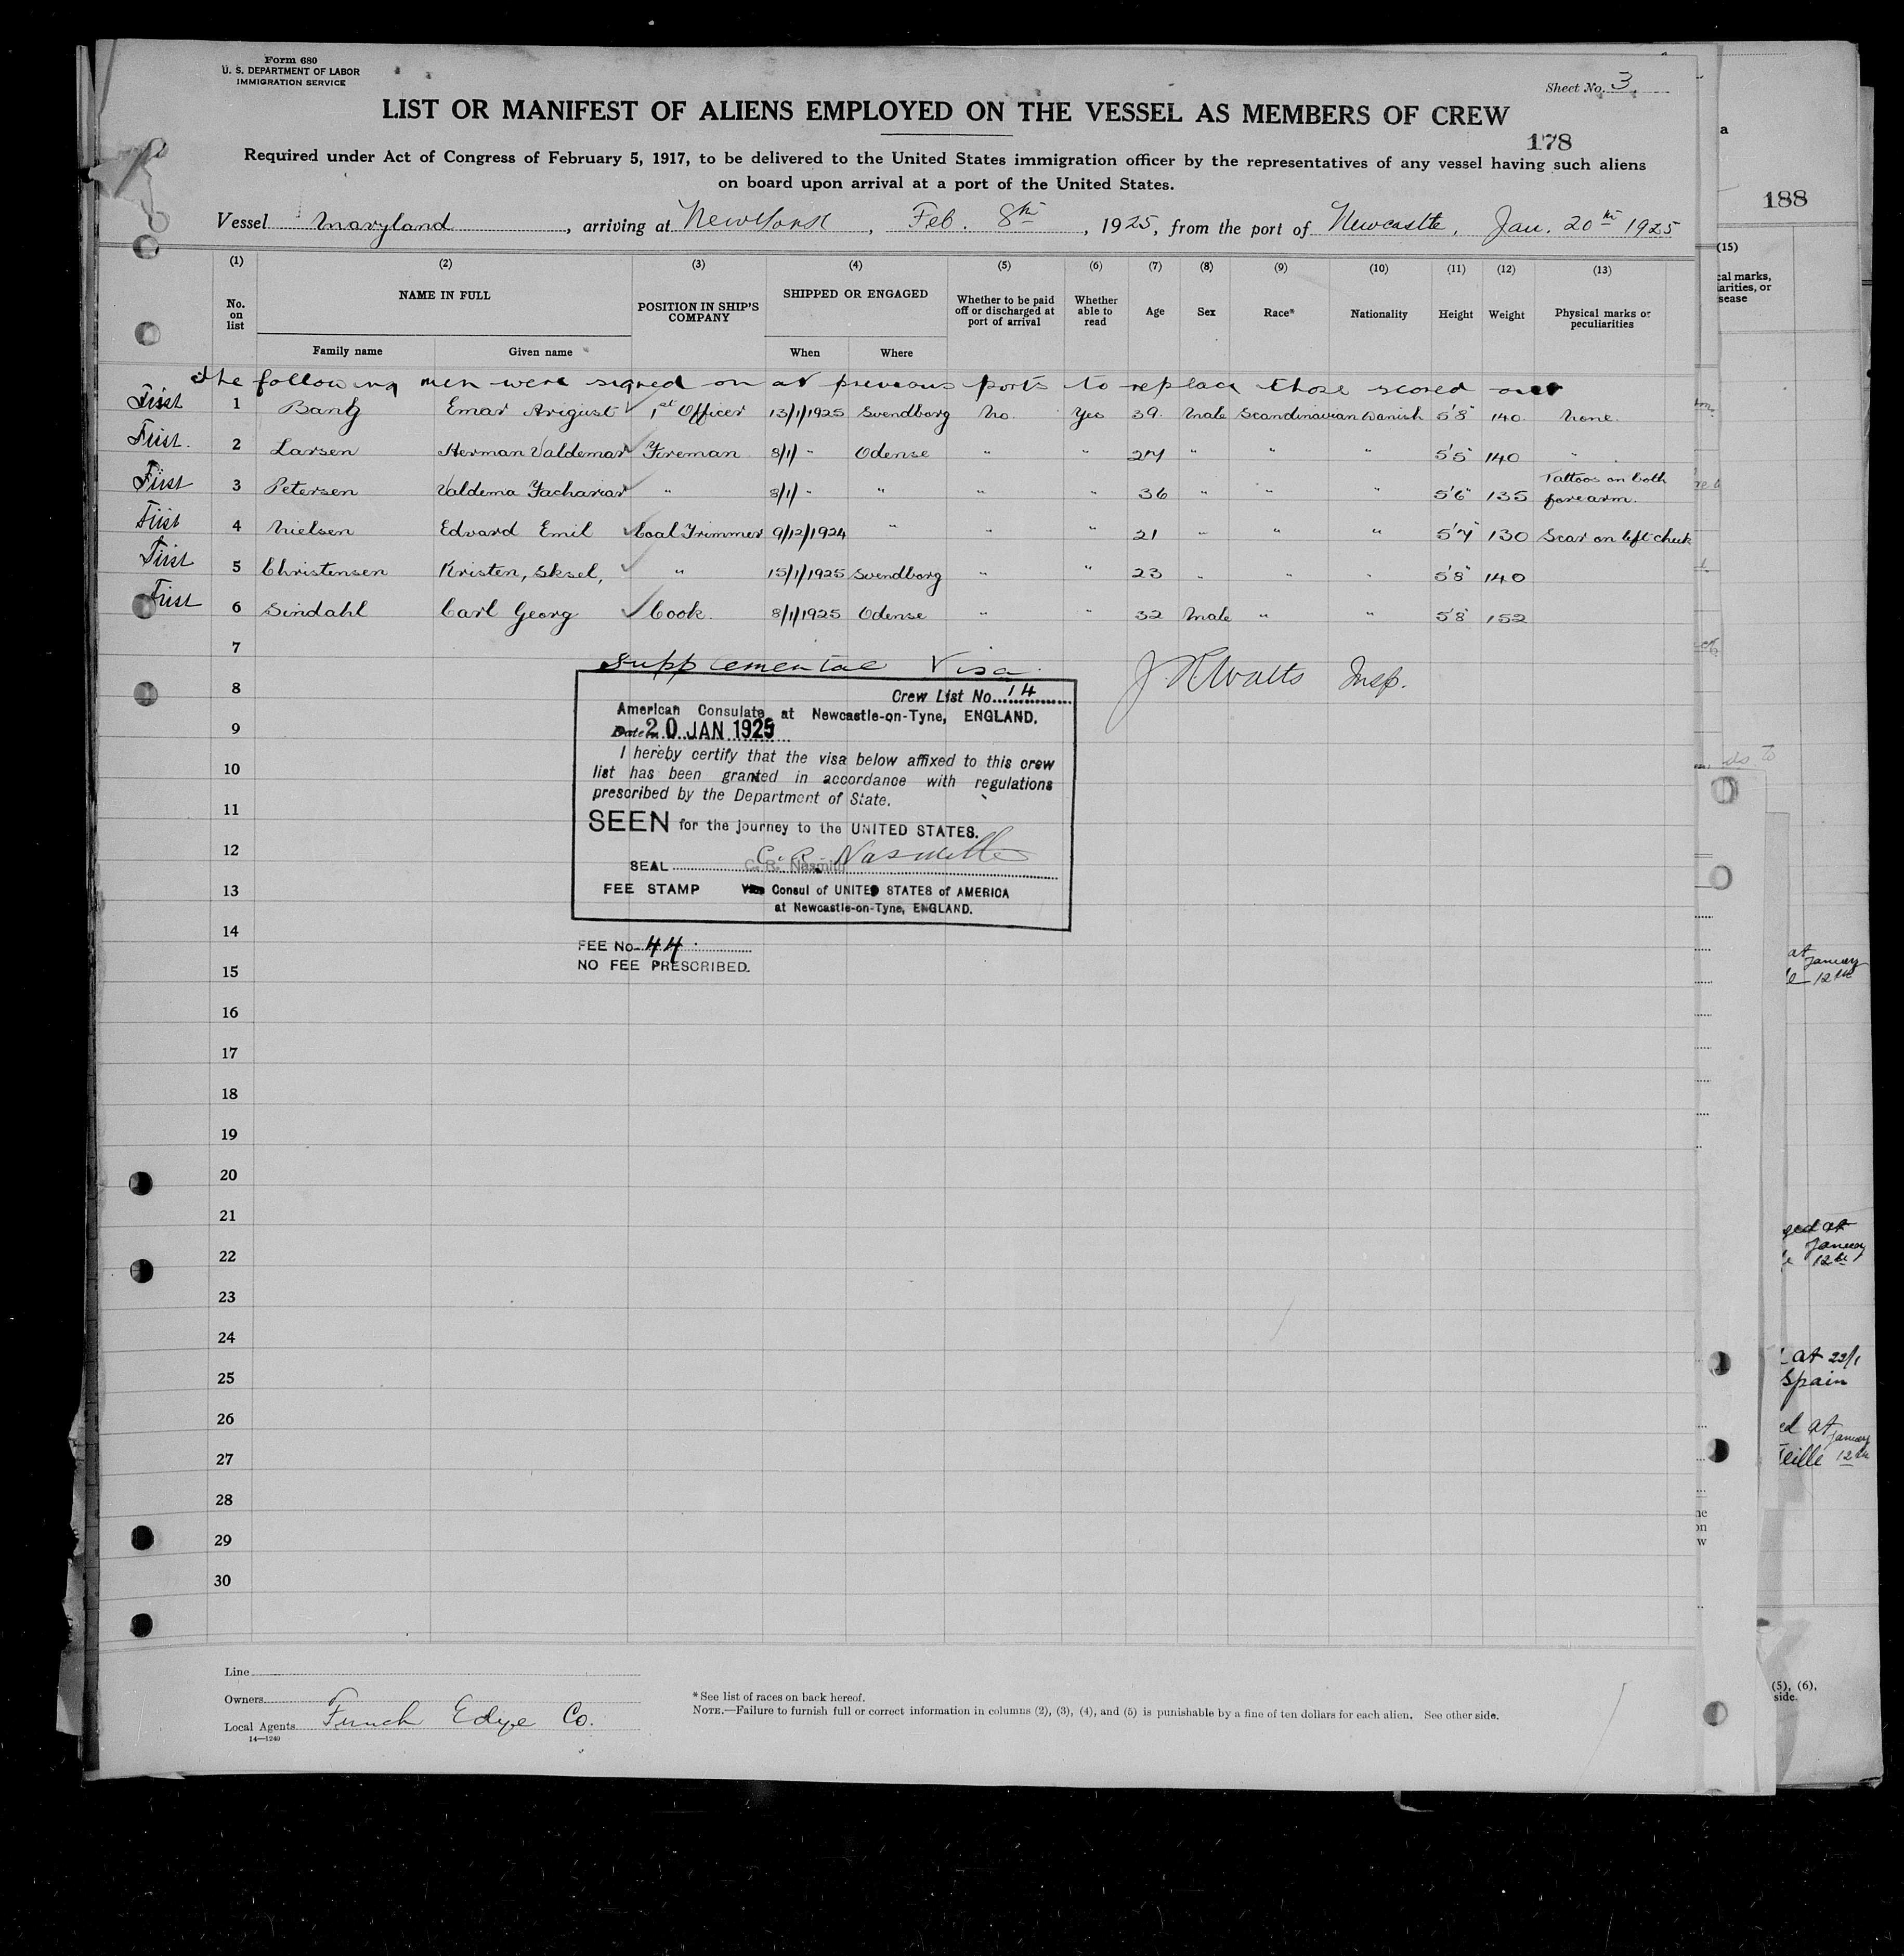 Form 680
U. S. DEPARTMENT OF LABOR
IMMIGRATION SERVICE
Sheet No. 3
LIST OR MANIFEST OF ALIENS EMPLOYED ON THE VESSEL AS MEMBERS OF CREW
178
Required under Act of Congress of February 5, 1917, to be delivered to the United States immigration officer by the representatives of any vessel having such aliens
on board upon arrival at a port of the United States.
Vessel Maryland, arriving at New York, Feb. 8th, 1925, from the port of Newcastle, Jan. 20th 1925
(1) (2) (3) (4) (5) (6) (7) (8) (9) (10) (11) (12) (13)
No. on list NAME IN FULL Family name Given name POSITION IN SHIP'S COMPANY SHIPPED OR ENGAGED When Where Whether to be paid off or discharged at port of arrival Whether able to read Age Sex Race* Nationality Height Weight Physical marks or peculiarities
The following men were signed on at previous ports to replace those scored out
First 1 Bang Emar August 1st Officer 13/1/1925 Svendborg No. Yes 39 Male Scandinavian Danish 5'8" 140 None.
First. 2 Larsen Herman Valdemar Fireman 8/1/ " Odense " " 27 " " " 5'5" 140 "
First 3 Petersen Valdema Zacharias " 8/1/ " " " " 36 " " " 5'6" 135 Tattoos on both forearm.
First 4 Nielsen Edvard Emil Coal Trimmer 9/12/1924 " " " 21 " " " 5'7" 130 Scar on left cheek
First 5 Christensen Kristen, Sksel, " 15/1/1925 Svendborg " " 23 " " " 5'8" 140
First 6 Sindahl Carl Georg Cook. 8/1/1925 Odense " " 32 Male " " 5'8" 152
7
Supplemental Visa.
J R Watts Insp.
8
Crew List No. 14
American Consulate at Newcastle-on-Tyne, ENGLAND.
9
Date 20 JAN 1925
I hereby certify that the visa below affixed to this crew
10
list has been granted in accordance with regulations
prescribed by the Department of State.
11
SEEN for the journey to the UNITED STATES.
12
C. R. Nasmith
SEAL C. R. Nasmith
13
FEE STAMP Vice Consul of UNITED STATES of AMERICA
at Newcastle-on-Tyne, ENGLAND.
14
FEE No. 44.
15
NO FEE PRESCRIBED.
16
17
18
19
20
21
22
23
24
25
26
27
28
29
30
Line
Owners
Local Agents Funch Edye Co.
14—1240
*See list of races on back hereof.
NOTE.—Failure to furnish full or correct information in columns (2), (3), (4), and (5) is punishable by a fine of ten dollars for each alien. See other side.
a
188
(15)
cal marks,
iarities, or
sease
at January
12th
ged at
January
12th
at 23/1
Spain
ed at January
eille 12th
(5), (6),
side.